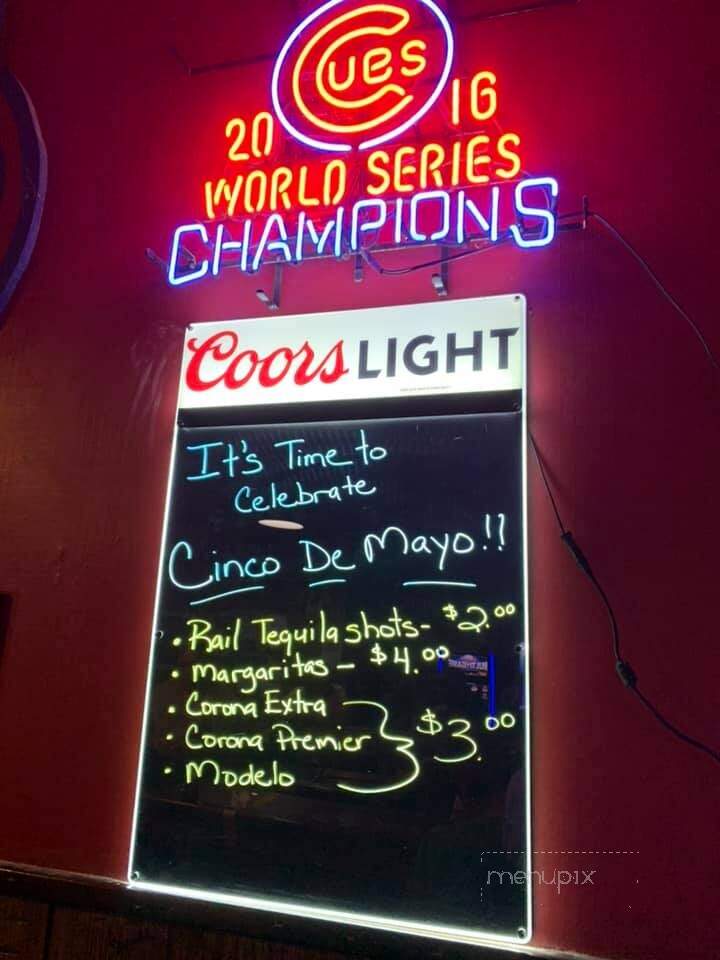 Cubs
20 16
WORLD SERIES
CHAMPIONS
Coors LIGHT
It's Time to
Celebrate
Cinco De Mayo!!
• Rail Tequila shots- $2.00
• Margaritas - $4.00
• Corona Extra
• Corona Premier } $3.00
• Modelo
menupix